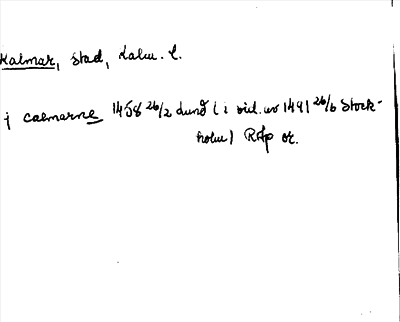 Kalmar, stad, Kalm. l.
j calmarne 1458 26/2 Lund (i vid. av 1491 26/6 Stock-
holm) RAp or.